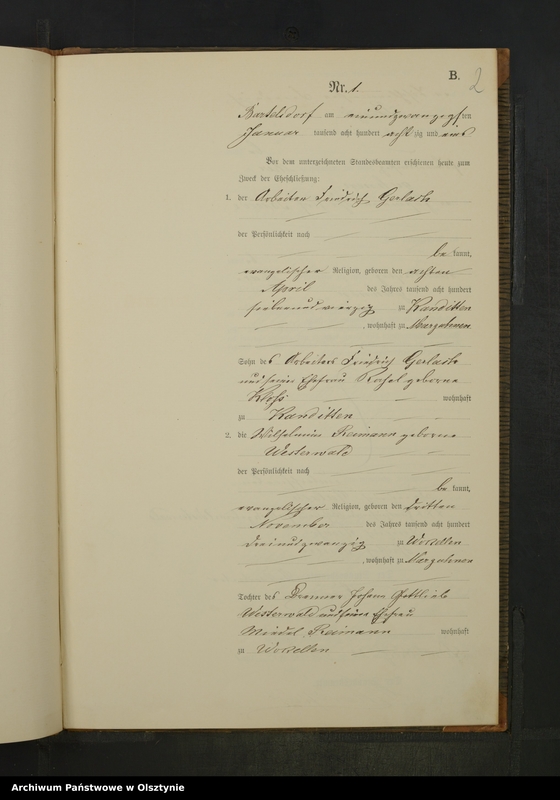 B.
2
Nr. 1.
Bartelsdorf am neunundzwanzigsten
Januar tausend acht hundert achtzig und eins
Vor dem unterzeichneten Standesbeamten erschienen heute zum
Zweck der Eheschließung:
1. der Arbeiter Friedrich Gerlach
der Persönlichkeit nach
be kannt,
evangelischer Religion, geboren den achten
April des Jahres tausend acht hundert
siebenundvierzig zu Kanditten
, wohnhaft zu
Sohn des Arbeiters Friedrich Gerlach
und seiner Ehefrau geborne
wohnhaft
zu Kanditten
2. die Wilhelmine Reimann geborne
Westerwald
der Persönlichkeit nach
be kannt,
evangelischer Religion, geboren den dritten
November des Jahres tausend acht hundert
dreiundzwanzig zu Woedtken
, wohnhaft zu
Tochter des Johann Gottlieb
Westerwald und seiner Ehefrau
Reimann wohnhaft
zu
Archiwum Państwowe w Olsztynie